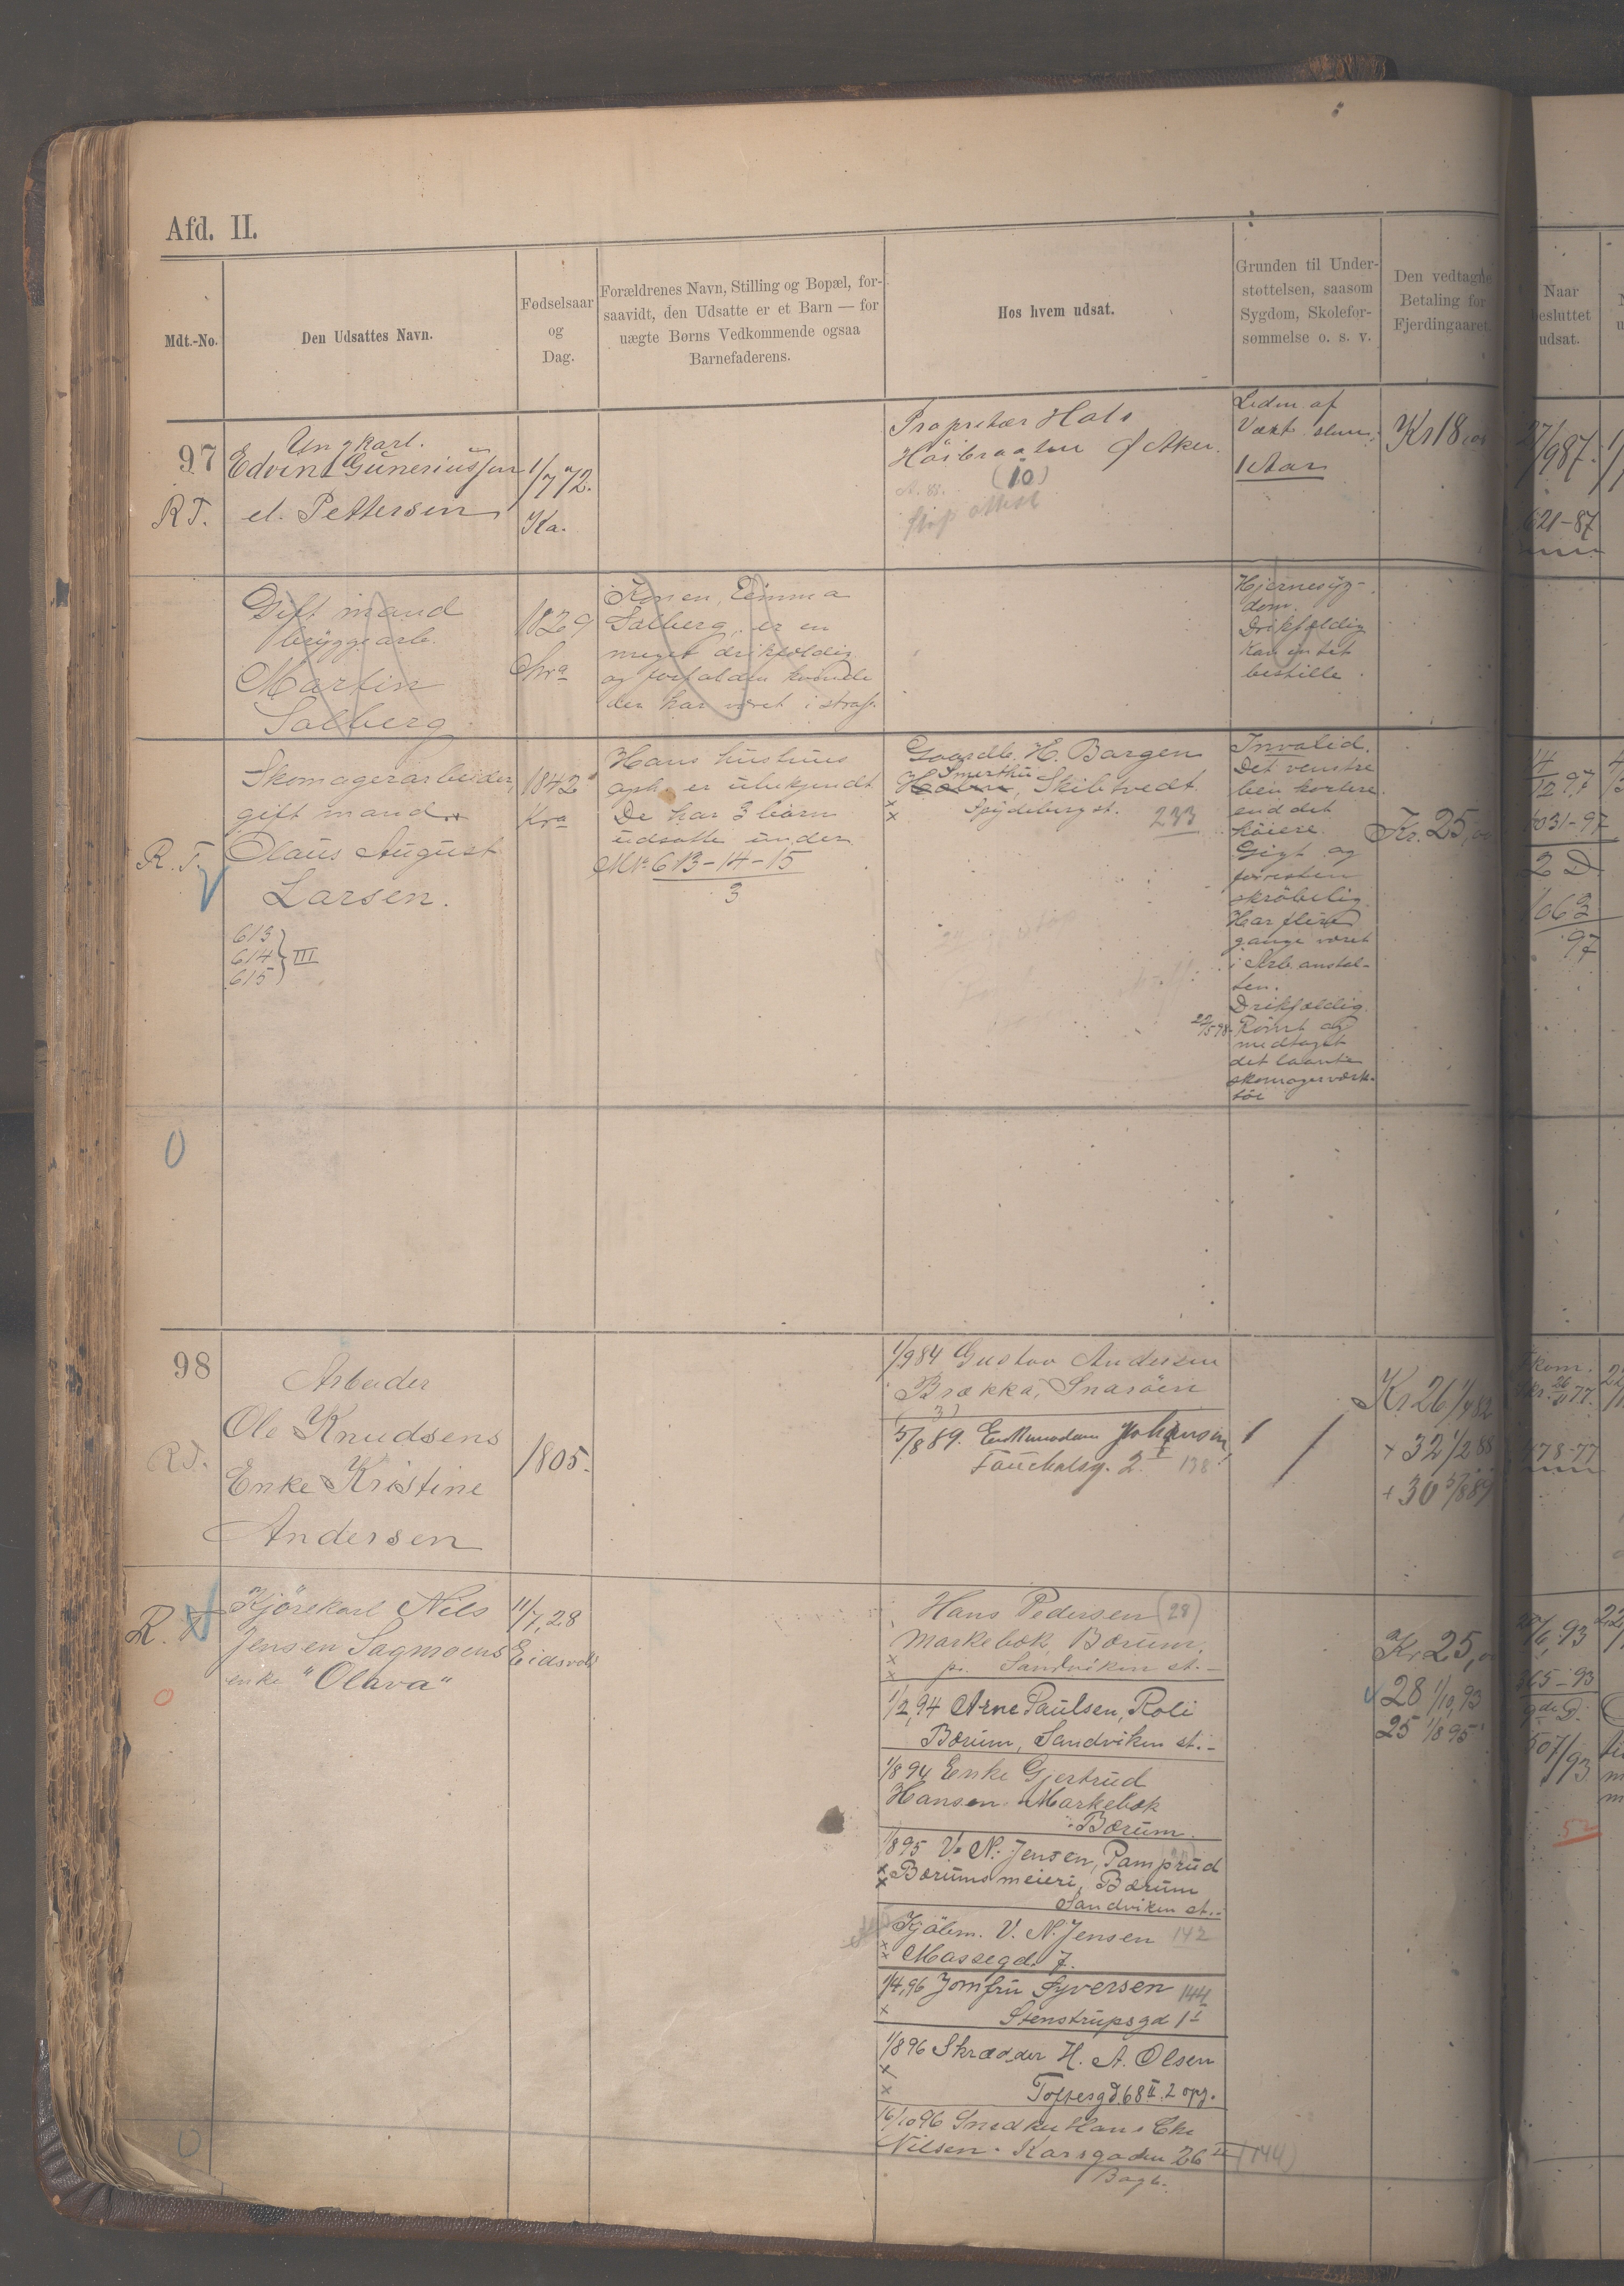 Afd. II.
Mdt.-No.
Den Udsattes Navn.
Fødselsaar
og
Dag.
Forældrenes Navn, Stilling og Bopæl, for-
saavidt, den Udsatte er et Barn — for
uægte Børns Vedkommende ogsaa
Barnefaderens.
Hos hvem udsat.
Grunden til Under-
støttelsen, saasom
Sygdom, Skolefor-
sømmelse o. s. v.
Den vedtagne
Betaling for
Fjerdingaaret.
Naar
besluttet
udsat.
97
R T.
Ungkarl.
Edvint Guneriussen
el. Pettersen
1/7 72.
Ka.
Proprietær Hals
Høibraaten Ø Aker.
(10)
attest
Leden af
Vækt
1 Aar
Kr 18
27/9 87.
621-87
Gift mand
bryggearb.
Martin
Salberg
1829
Konen, Emma
Salberg, er en
meget drikfældig
og forfalden kvinde
der har været i straf.
Hjernesyg-
dom.
Drikfældig
Kan intet
bestille.
R. T.
Skomagerarbeider,
gift mand
Olaus August
Larsen.
613
614 III
615
1842
Kra
Hans hustrus
oph. er ubekjendt
De har 3 børn
udsatte under
No 613-14-15
3
Gaardb. H. Bargen
Smerthu
Skibtvedt
Spydeberg st. 233
Invalid.
Det venstre
ben kortere
end det
høiere.
Gigt og
forresten
skrøbelig
Har flere
gange været
i Arb. anstal-
ten.
Drikfældig.
22/5 98 Rømt og
medtaget
det laante
skomagerværk-
tøi
Kr. 25,
14/12 97
1031-97
2 D
1063
97
98
R T.
Arbeider
Ole Knudsens
Enke Kristine
Andersen
1805.
1/9 84 Gustav Andersen
Brække, Snarøen
(3)
5/8 89. Enkemadam Johansen,
Fauchalsg. 2 I 138
Kr 26 1/4 82
+ 32 1/2 88
+ 30 5/8 89
478-77
R. T
Kjørekarl Nils
Jensen Sagmoens
enke "Olava"
11/7, 28
Eidsvold
Hans Pedersen (28)
Markebæk, Bærum,
pr. Sandviken st.-
1/2, 94 Arne Paulsen, Roli
Bærum, Sandviken st.-
1/8 94 Enke Gjertrud
Hansen Markebæk
Bærum.
1/8 95 V. N. Jensen, Pamprud
Bærums meieri, Bærum
Sandviken st.-
Kjøbm. V. N. Jensen 142
Massegd. 7.
1/4, 96 Jomfru Syversen 144
Stenstrupsgd 1 I
1/8 96 Skrædder H. A. Olsen
Toftesgd. 68 II. 2 opg.
16/10 96 Snedker Hans Chr.
Nilsen. Karsgaden 26 II (144)
Bagb.
Kr 25,
28 1/10, 93
25 1/8 95
365-93
507/93